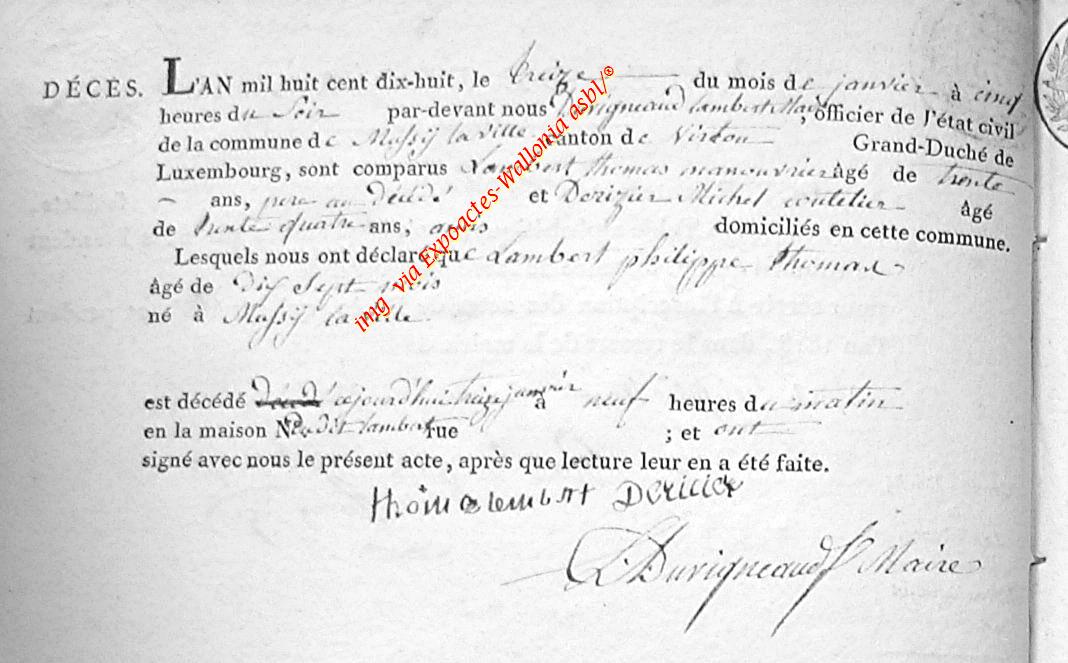 DÉCES. L'AN mil huit cent dix-huit, le treize du mois de janvier à cinq
heures du Soir par-devant nous Duvigneaud lambert Maire, officier de l'état civil
de la commune de Mussy la ville canton de Virton Grand-Duché de
Luxembourg, sont comparus Lambert thomas manouvrier âgé de trente
ans, pere au décédé et Derizier Michel coutelier âgé
de trente quatre ans, amis domiciliés en cette commune.
Lesquels nous ont déclaré que Lambert philippe thomas
âgé de Dix Sept mois
né à Mussy la ville
est décédé cejourd'hui treize janvier à neuf heures du matin
en la maison N. dudit lambert rue ; et ont
signé avec nous le présent acte, après que lecture leur en a été faite.
thomas lembert Dericier
L Duvigneaud Maire
img via Expoactes-Wallonia asbl/®